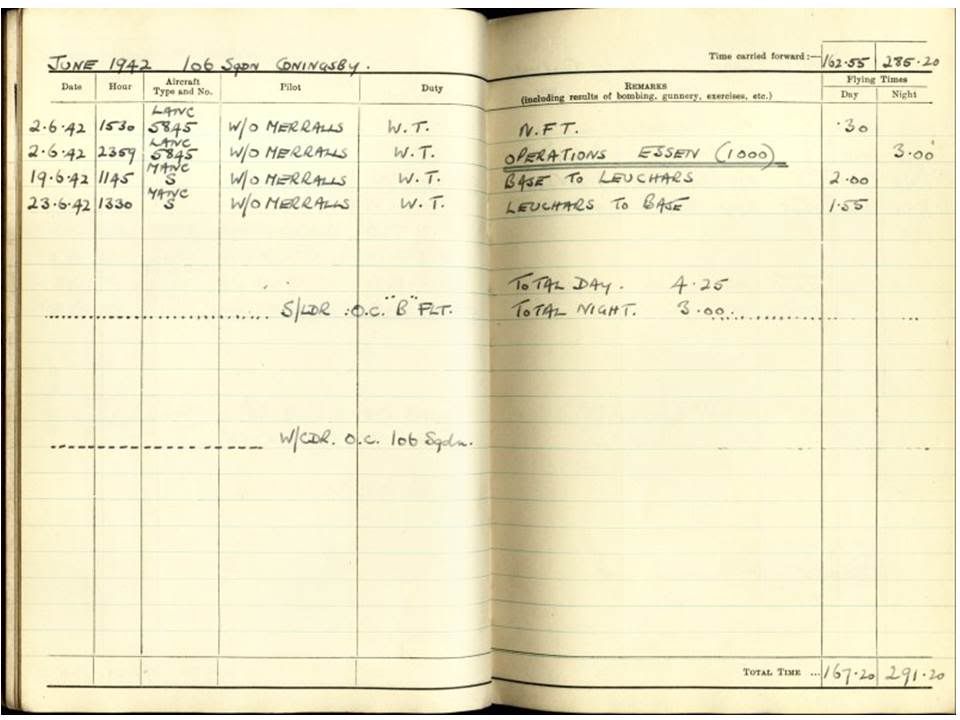 JUNE 1942 106 SQDN CONINGSBY. Time carried forward:— 162.55 285.20
Date Hour Aircraft Type and No. Pilot Duty REMARKS (including results of bombing, gunnery, exercises, etc.) Flying Times Day Night
2.6.42 1530 LANC 5845 W/O MERRALLS W.T. N.F.T. .30
2.6.42 2359 LANC 5845 W/O MERRALLS W.T. OPERATIONS ESSEN (1000) 3.00
19.6.42 1145 MANC S W/O MERRALLS W.T. BASE TO LEUCHARS 2.00
23.6.42 1330 MANC S W/O MERRALLS W.T. LEUCHARS TO BASE 1.55
TOTAL DAY. 4.25
S/LDR :O.C. "B" FLT. TOTAL NIGHT. 3.00
W/CDR. O.C. 106 Sqdn.
TOTAL TIME ... 167.20 291.20